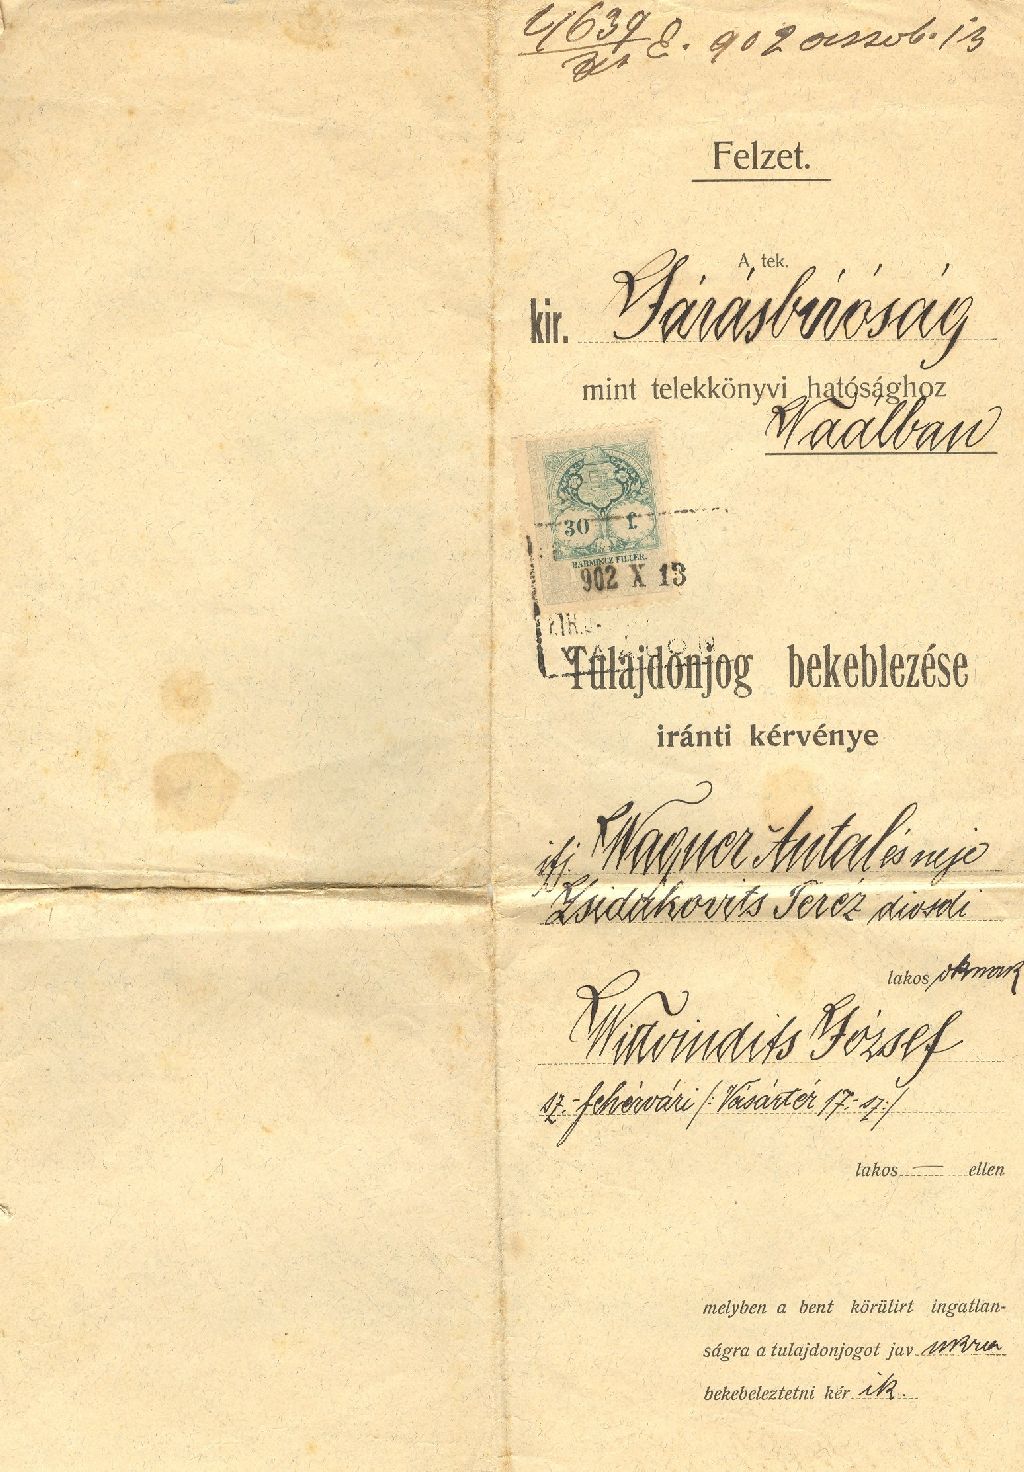 4639 E. 902 октоb. 13
Felzet.
A tek.
kir. Járásbíróság
mint telekkönyvi hatósághoz
Vaálban
30 f.
HARMINCZ FILLÉR.
902 X 13
Tulajdonjog bekeblezése
iránti kérvénye
ifj Wagner Antal és neje
Zsidákovits Teréz diósdi
lakos oknak
Wittvindits József
sz.-fehérvári /: Vásártér 17.-sz:/
lakos — ellen
melyben a bent körülirt ingatlan-
ságra a tulajdonjogot jav ukra
bekebeleztetni kér ik.